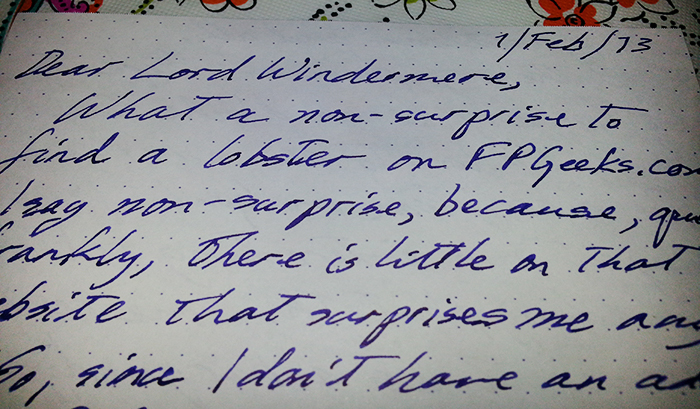 1/Feb/13
Dear Lord Windermere,
What a non-surprise to
find a lobster on FPGeeks.com
I say non-surprise, because, qu
rankly, there is little on that
bsite that surprises me any
So, since I don't have an ad